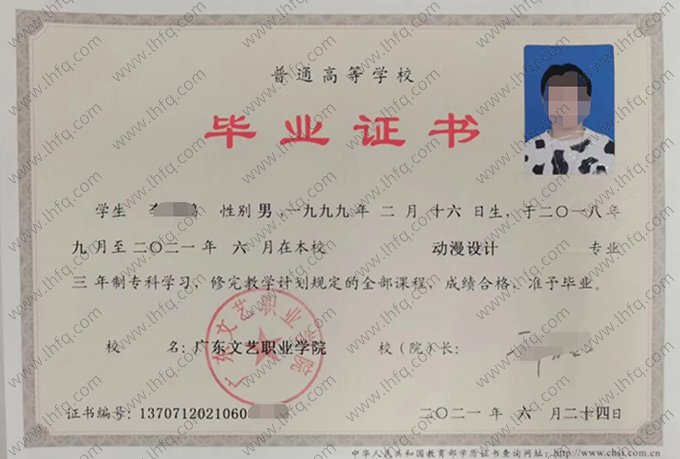 普通高等学校
毕业证书
学生 性别 男，一九九九年 二月 十六日生，于二〇一八年
九月至二〇二一年 六月在本校 动漫设计 专业
三年制专科学习，修完教学计划规定的全部课程，成绩合格，准予毕业。
校 名：广东文艺职业学院 校（院）长：
广东文艺职业学院
证书编号：1370712021060 二〇二一年 六月二十四日
中华人民共和国教育部学历证书查询网址：http://www.chsi.com.cn
www.lhfq.com